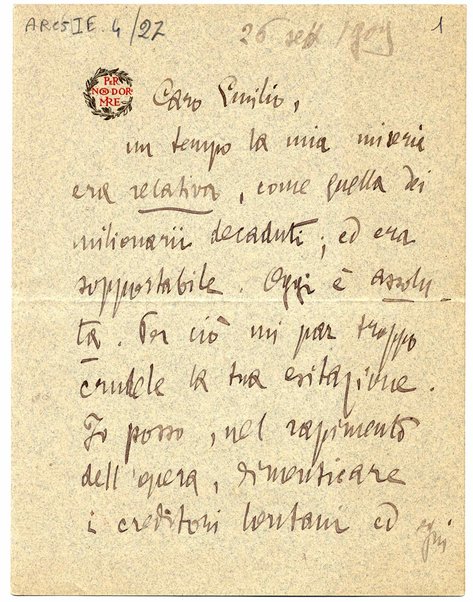 ARC51E. 4/27
26 sett 1909
1
PER
NON DOR
MIRE
Caro Emilio,
un tempo la mia miseria
era relativa, come quella dei
milionarii decaduti; ed era
sopportabile. Oggi è assolu-
ta. Per ciò mi par troppo
crudele la tua esitazione.
Io posso, nel rapimento
dell'opera, dimenticare
i creditori lontani ed ogni